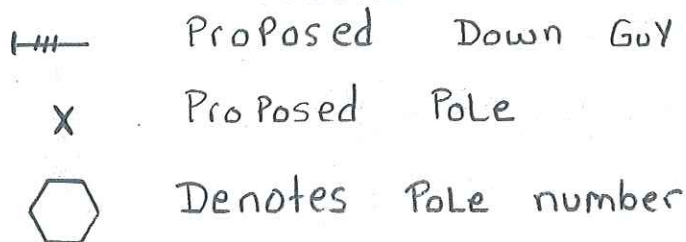 Proposed Down Guy
X Proposed Pole
Denotes Pole number